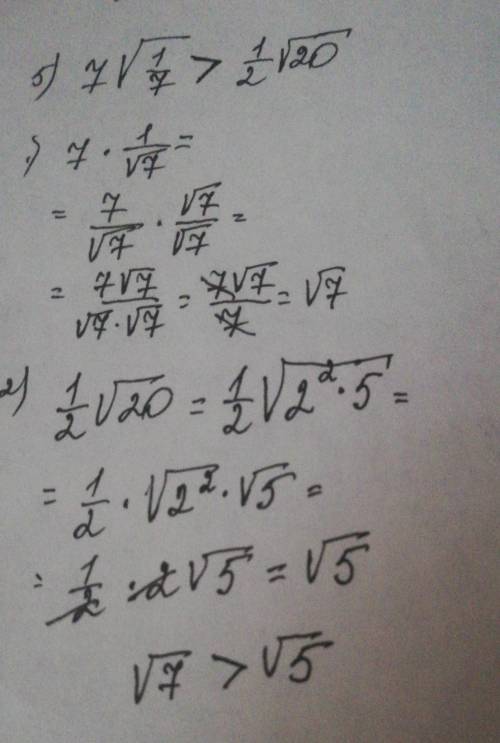 б) 7√(1/7) > 1/2 √20
1) 7 · 1/√7 =
= 7/√7 · √7/√7 =
= 7√7/(√7·√7) = 7√7/7 = √7
2) 1/2 √20 = 1/2 √(2²·5) =
= 1/2 · √2² · √5 =
= 1/2 · 2√5 = √5
√7 > √5